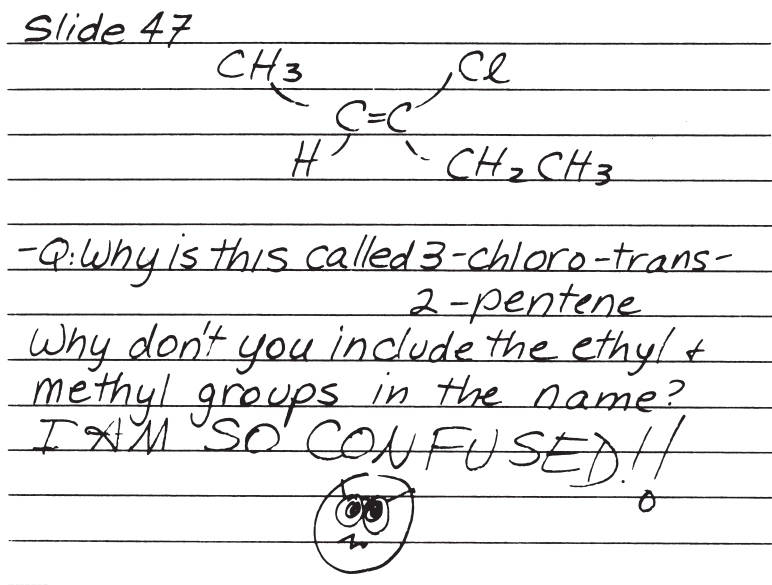 Slide 47
CH3 Cl
C=C
H CH2CH3
-Q: Why is this called 3-chloro-trans-
2-pentene
Why don't you include the ethyl &
methyl groups in the name?
I AM SO CONFUSED!!